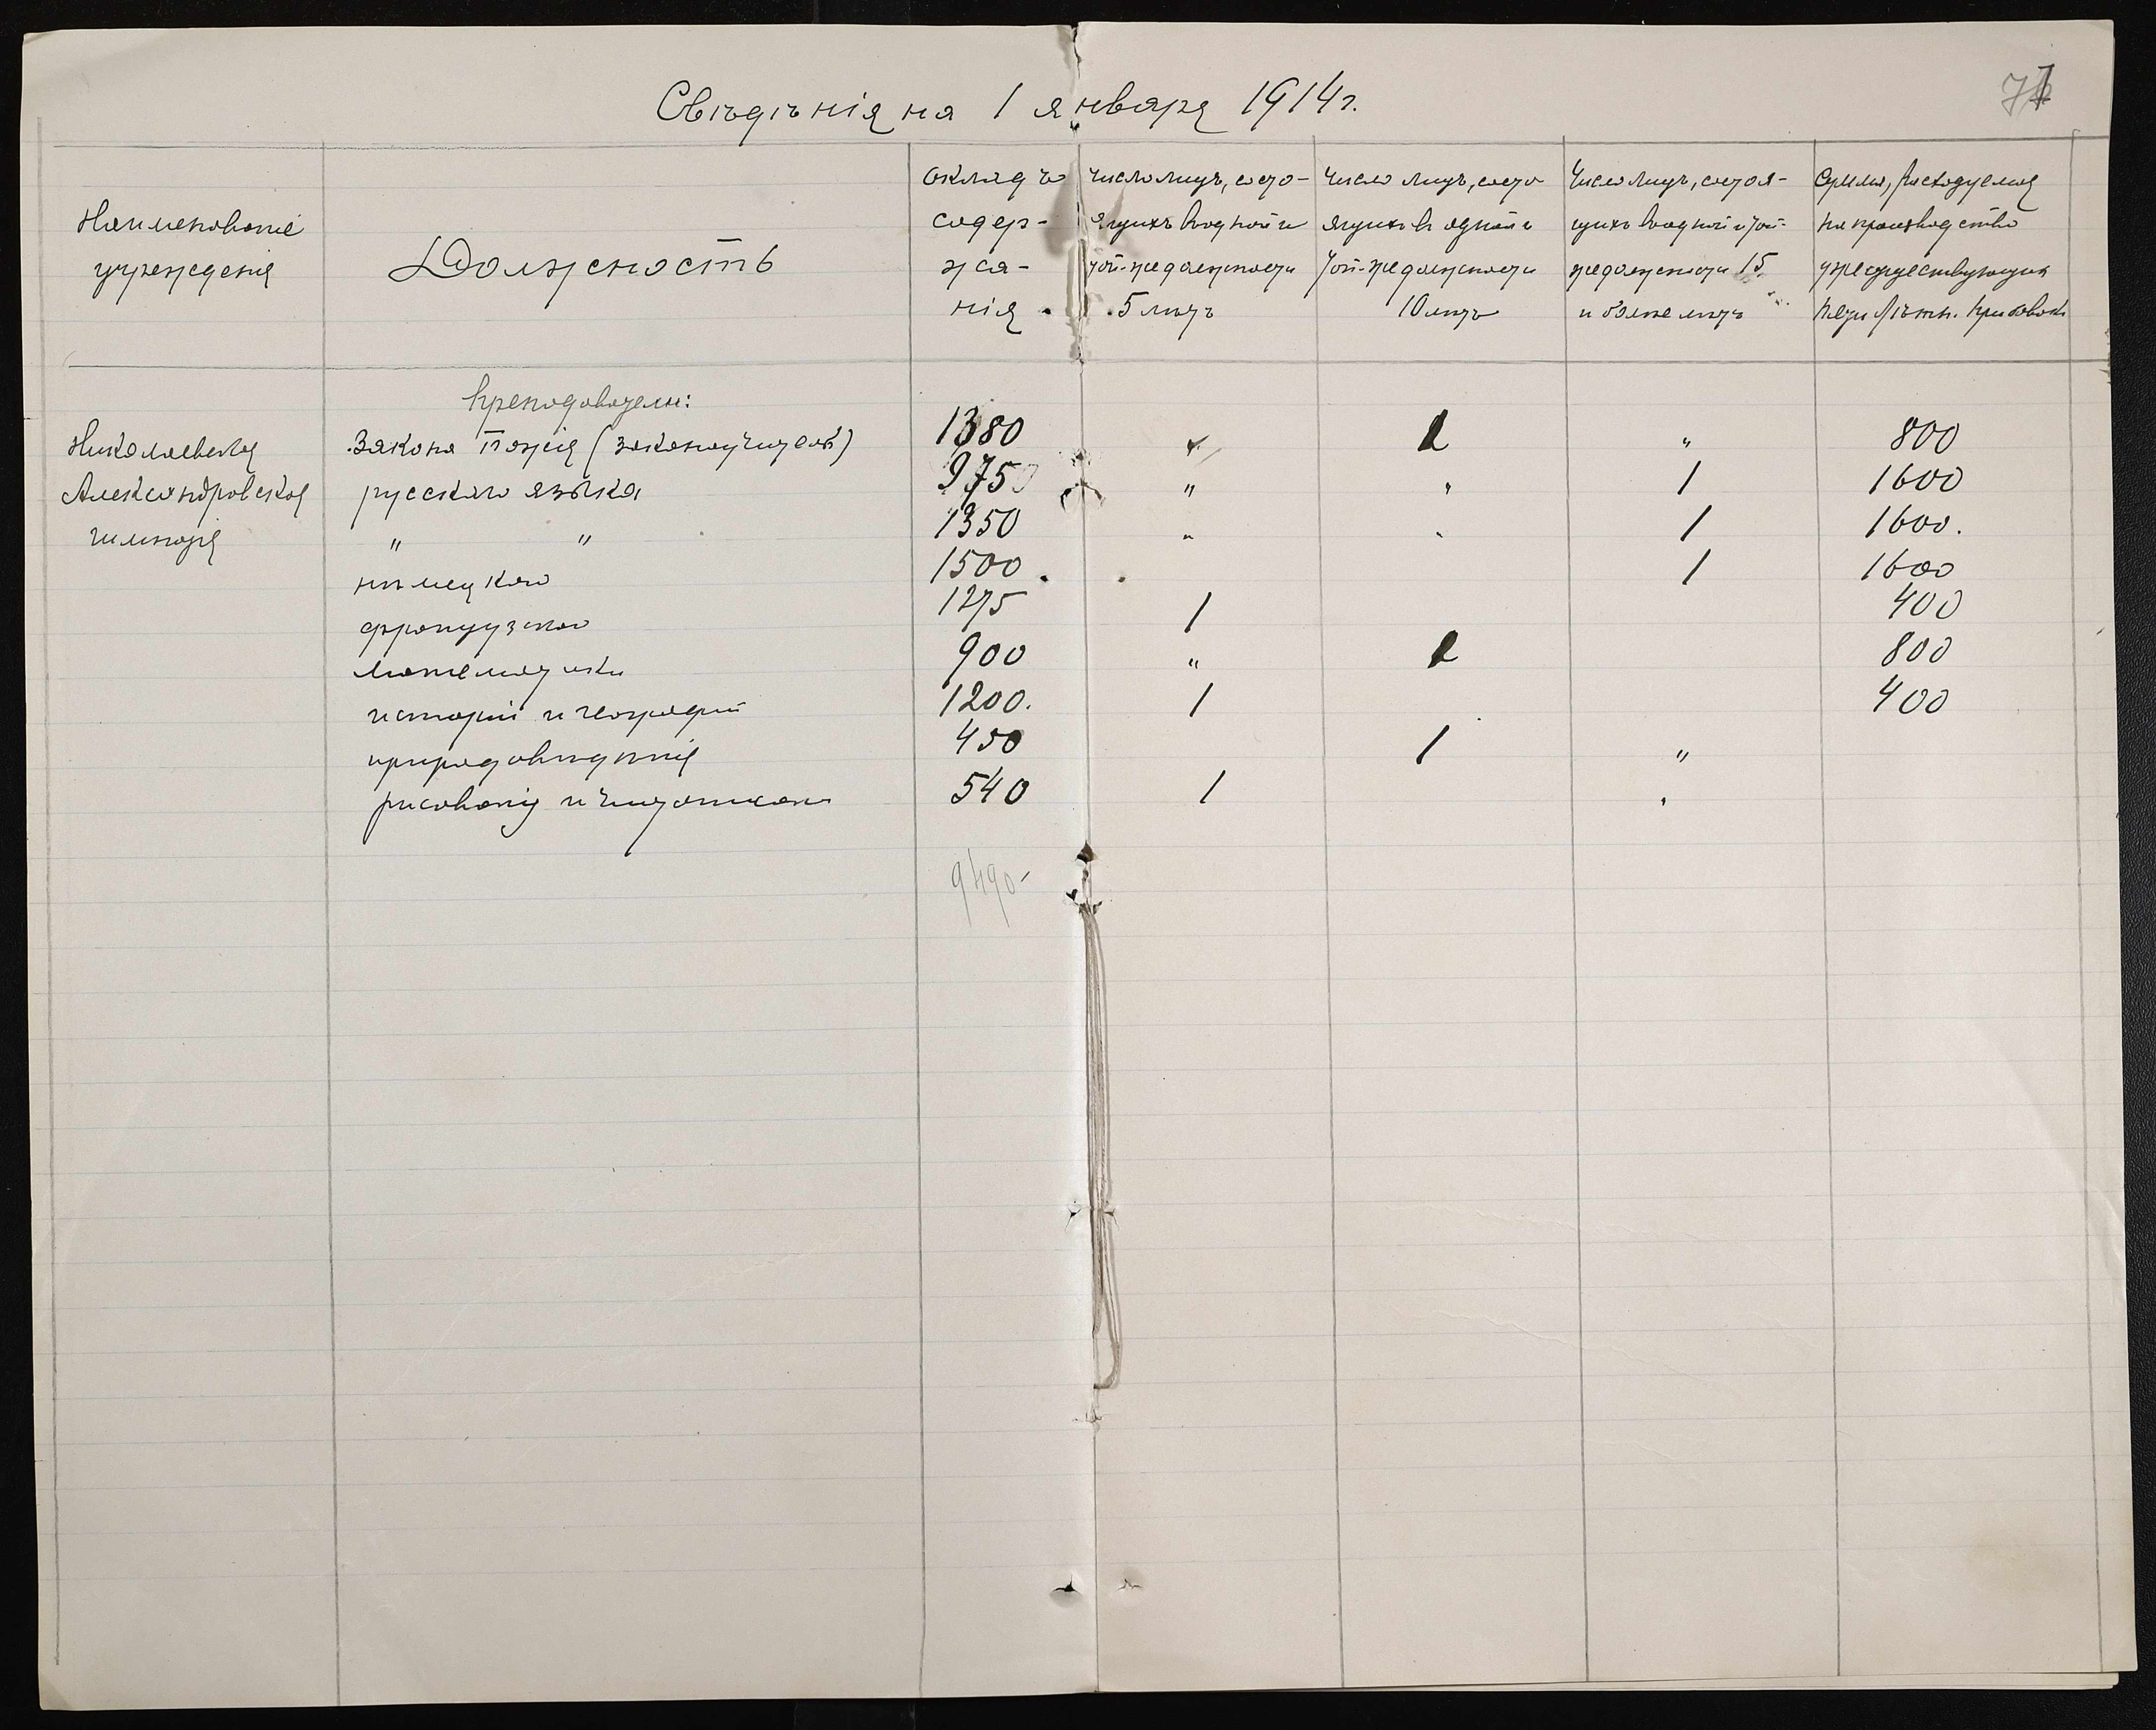 Свѣдѣнія на 1 января 1914 г.
71
Наименованіе
учрежденія
Должность
окладъ
содер-
жа-
нія
Число лицъ, состо-
ящихъ въ одной и
той-же должности
5 лѣтъ
Число лицъ, состо
ящихъ въ одной и
той-же должности
10 лѣтъ
Число лицъ, состоя-
щихъ въ одной и той-
же должности 15
и болѣе лѣтъ
Сумма, расходуемая
на производство
существующихъ
пяти лѣтн. прибавокъ
Преподователи:
Николаевская Закона Божія (законоучитель) 1380 " 1 " 800
Александровская русскаго языка 975 " " 1 1600
гимназія " " 1350 " " 1 1600.
нѣмецкаго 1500 1 1600
французскаго 1275 1 400
математики 900 " 1 800
исторіи и географіи 1200. 1 400
природовѣдѣнія 450 1 "
рисованія и чистописанія 540 1 "
9490-